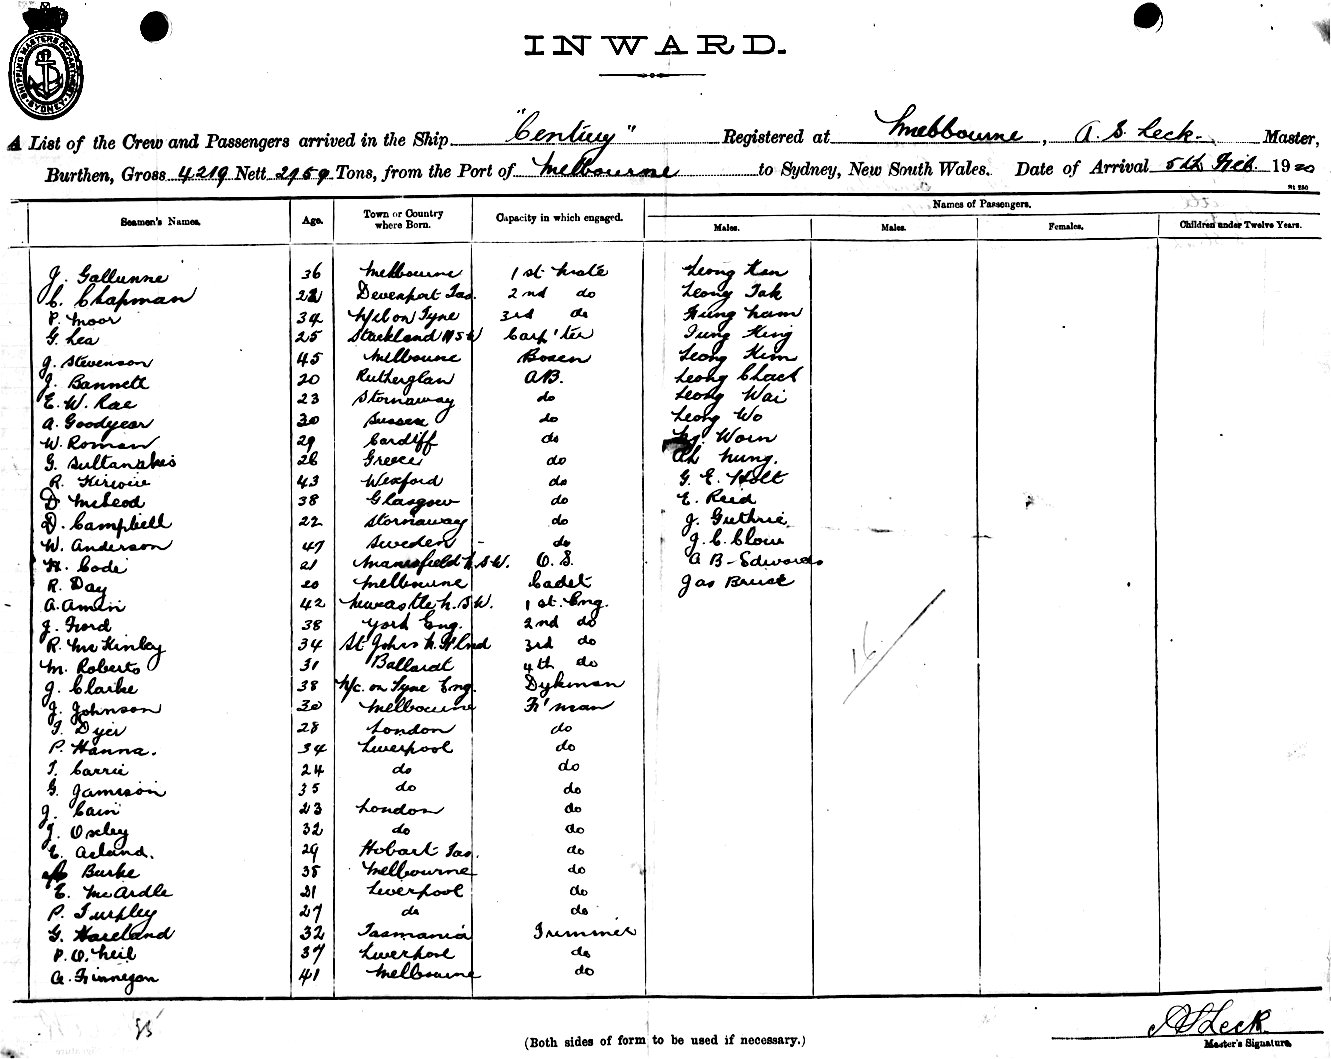 SHIPPING MASTERS DEPARTMENT SYDNEY
INWARD.
A List of the Crew and Passengers arrived in the Ship "Century" Registered at Melbourne, A. S. Leck. Master,
Burthen, Gross 4219 Nett 2959 Tons, from the Port of Melbourne to Sydney, New South Wales. Date of Arrival 5th Feb. 1920
Names of Passengers.
Seamen's Names. Age. Town or Country where Born. Capacity in which engaged. Males. Males. Females. Children under Twelve Years.
J. Gallunne 36 Melbourne 1st Mate Leong Ken
C. Chapman 22 Devenport Tas. 2nd do Leong Tak
P. Moor 34 N/cl on Tyne 3rd do Hung Nam
G. Lea 25 Stockland NSW Carp'ter Tung King
J. Stevenson 45 Melbourne Bosen Leong Kim
J. Bannett 20 Rutherglan AB. Leong Chack
E. W. Rae 23 Stornaway do Leong Wai
A. Goodyear 30 Sussex do Leong Wo
W. Roman 29 Cardiff do Worn
G. Sultanakis 26 Greece do Ah Nung.
R. 43 Wexford do G. E. Holt
D McLeod 38 Glasgow do E. Reid
D. Campbell 22 Stornaway do J. Guthrie
W. Anderson 47 Sweden - do J. C. Clow
H. Code 21 Mansfield N.S.W. O.S. A B- Edwards
R. Day 20 Melbourne Cadet Jas Bruce
A. Amin 42 Newcastle N.S.W. 1st. Eng.
J. Ford 38 York Eng. 2nd do
R. McKinlay 34 St Johns N.F.lnd 3rd do
M. Roberts 31 Ballarat 4th do
J. Clarke 38 N/c. on Tyne Eng. Dykman
J. Johnson 30 Melbourne F'man
T. Dyer 28 London do
P. Hanna. 34 Liverpool do
T. Carrie 24 do do
G. Jamison 35 do do
J. Cain 23 London do
J. Oxley 32 do do
E. Acland. 29 Hobart Tas. do
Burke 38 Melbourne do
E. McArdle 21 Liverpool do
P. Turpley 27 do do
G. Hareland 32 Tasmania Trimmer
P. O.Neil 37 Liverpool do
A. Finnegan 41 Melbourne do
16
35
A S Leck
(Both sides of form to be used if necessary.) Master's Signature.